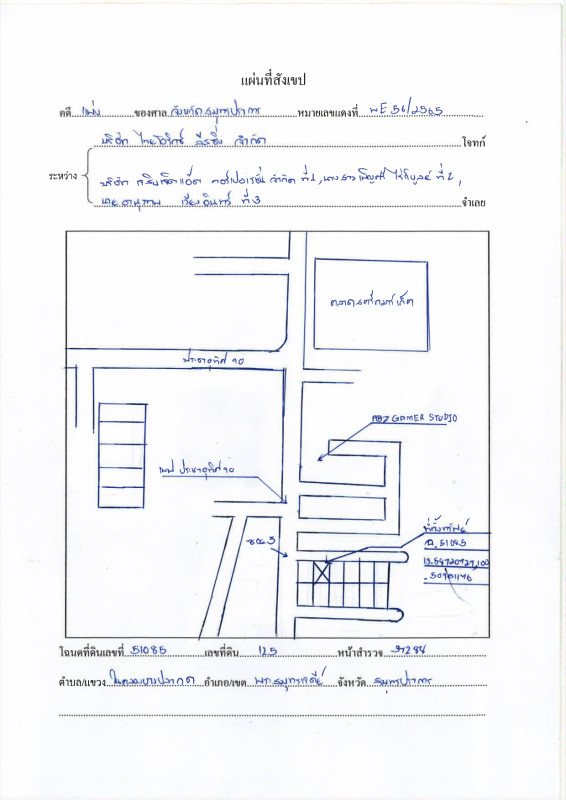 แผนที่สังเขป
คดี แพ่ง ของศาล จังหวัดสมุทรปราการ หมายเลขแดงที่ ผE 56/2565
บริษัท ไทยโอริกซ์ ลีสซิ่ง จำกัด โจทก์
ระหว่าง
บริษัท คอร์ปอเรชั่น จำกัด ที่ 1, นางสาว ไวกิบูลย์ ที่ 2,
นาย อานุภาพ เรืองอินทร์ ที่ 3 จำเลย
ตลาด
ประชาอุทิศ 90
ABZ GAMER STUDIO
ประชาอุทิศ 90
ซอย 3
ที่ตั้งทรัพย์
ฉ. 51085
13.5472097,100
.5091176
โฉนดที่ดินเลขที่ 51085 เลขที่ดิน 125 หน้าสำรวจ 37284
ตำบล/แขวง ในคลองบางปลากด อำเภอ/เขต พระสมุทรเจดีย์ จังหวัด สมุทรปราการ